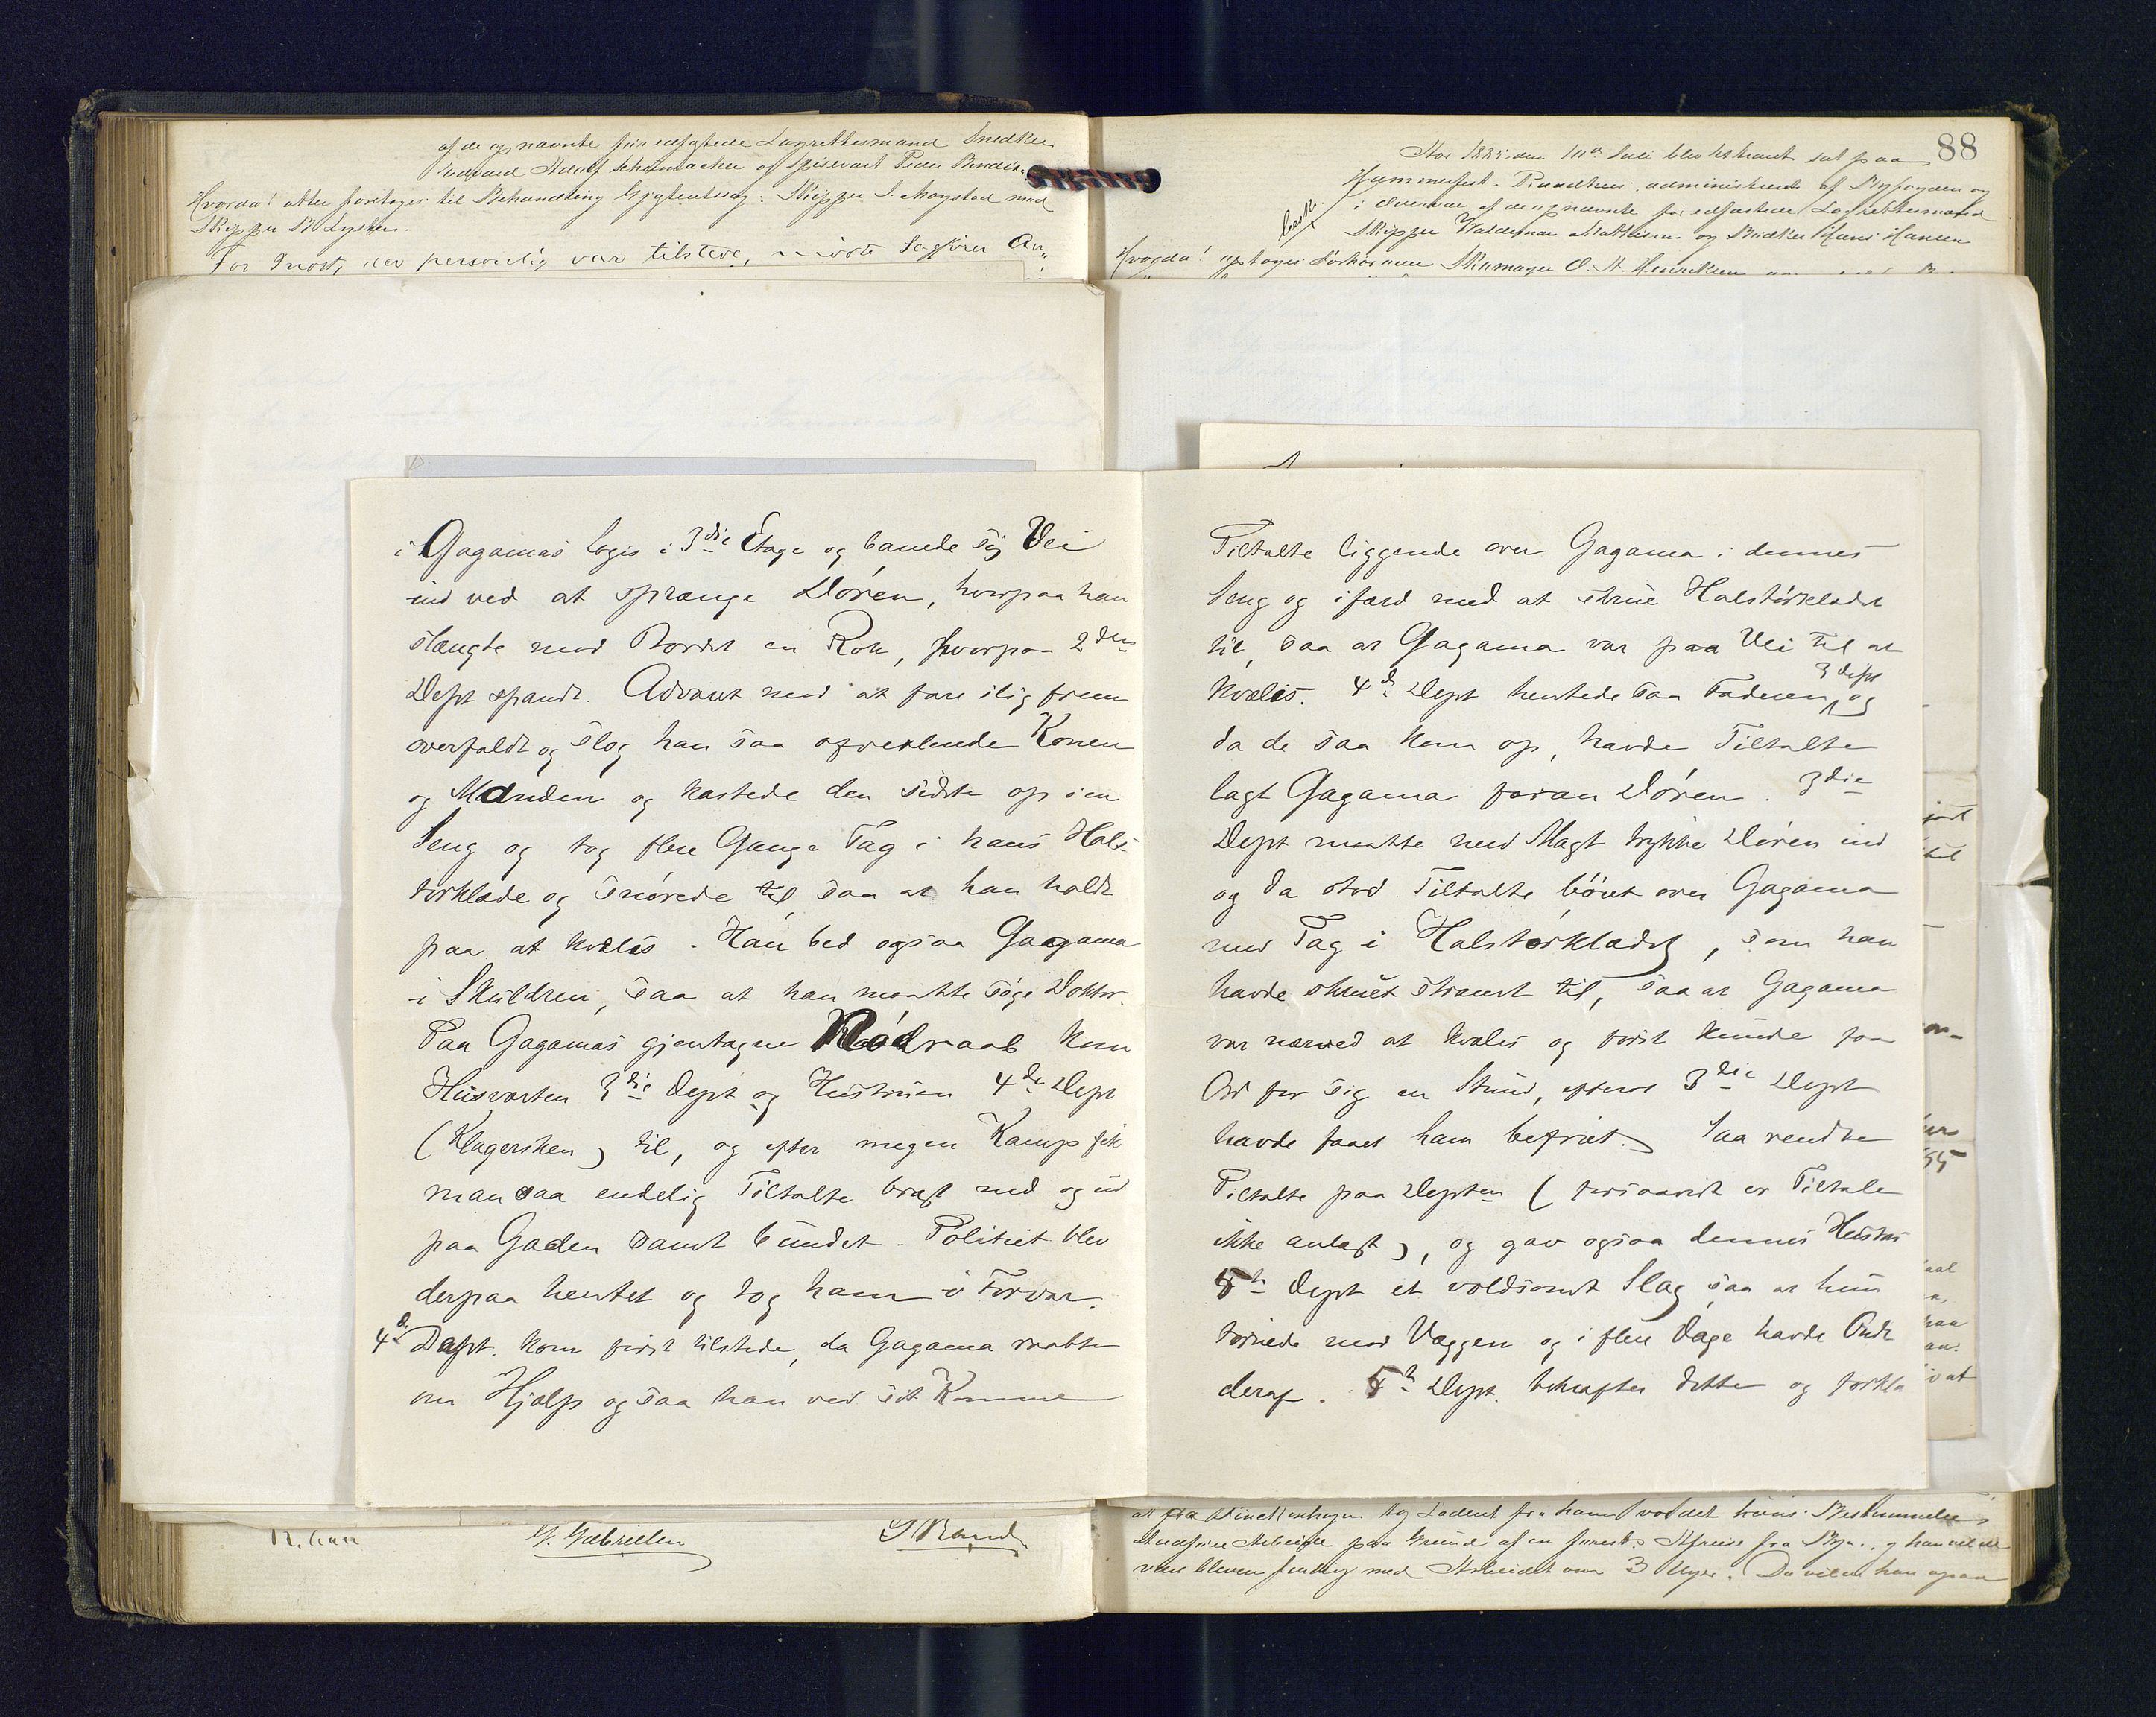 af de opnævnte forinedfæstede Lagrettesmænd Snedker
Edvard Adolf Schumacher og Spisevært Peder Bendix-
Hvorda! atter foretoges til Behandling Gjæstentssag: Skipper S. Mogstad mod
Skipper B Lysken.
For Indst, der personlig var tilstede, mødte Sagfører An-
88
Aar 1885 den 11te Juli blev Retten sat paa
Hammerfest Raadhus administreret af Byfogden og
i Overvær af de opnævnte forinedfæstede Lagrettesmænd
besk.
Skipper Waldemar Mathisen og Snedker Hans Hansen
Hvorda! optoges Forhør over Skomager O. A. Henriksen
i Gagamas Logis i 3die Etage og banede sig Vei
ind ved at sprænge Døren, hvorpaa han
slængte mod Bordet en Rok, hvorpaa 2den
Dept spandt. Advaret mod at fare slig frem
overfaldt og slog han saa afvexlende Konen
og Manden og kastede den sidste op i en
Seng og tog flere Gange Tag i hans Hals-
tørklæde og snørede til saa at han holdt
paa at kvæles. Han bed ogsaa Gagama
i Skuldren, saa at han maatte søge Doktor.
Paa Gagamas gjentagne Nødraab kom
Husværten 3die Dept og Hustruen 4de Dept
(Klagersken) til, og efter megen Kamp fik
man saa endelig Tiltalte bragt ned og ud
paa Gaden samt bundet. Politiet blev
derpaa hentet og tog ham i Forvar.
4de Dept. kom først tilstede, da Gagama raabte
om Hjælp og saa han ved sit Komme
Tiltalte liggende over Gagama i dennes
Seng og ifærd med at skrue Halstørklædet
til, saa at Gagama var paa Vei til at
kvæles. 4de Dept hentede saa Faderen, 3 Dept og
da de saa kom op, havde Tiltalte
lagt Gagama foran Døren. 3die
Dept maatte med Magt trykke Døren ind
og da stod Tiltalte bøiet over Gagama
med Tag i Halstørklædet, som han
havde skruet stramt til, saa at Gagama
var nærved at kvæles og først kunde faa
Ord for sig en Stund, efterat 3die Dept
havde faaet ham befriet. Saa rendte
Tiltalte paa Depten (forsaavidt er Tiltale
ikke anlagt), og gav ogsaa dennes Hustru
4de Dept et voldsomt Slag, saa at hun
tørnede mod Væggen og i flere Dage havde Ondt
deraf. 5te Dept. bekræfter dette og forkla
G. Gabrielsen
at fra Findkenhagen og Ladent fra ham var det hans Bestemmelse
Arbeide paa Grund af en forest. Afreise fra Byen, og han vilde
være bleven færdig med Arbeidet om 3 Uger. Da vilde han ogsaa